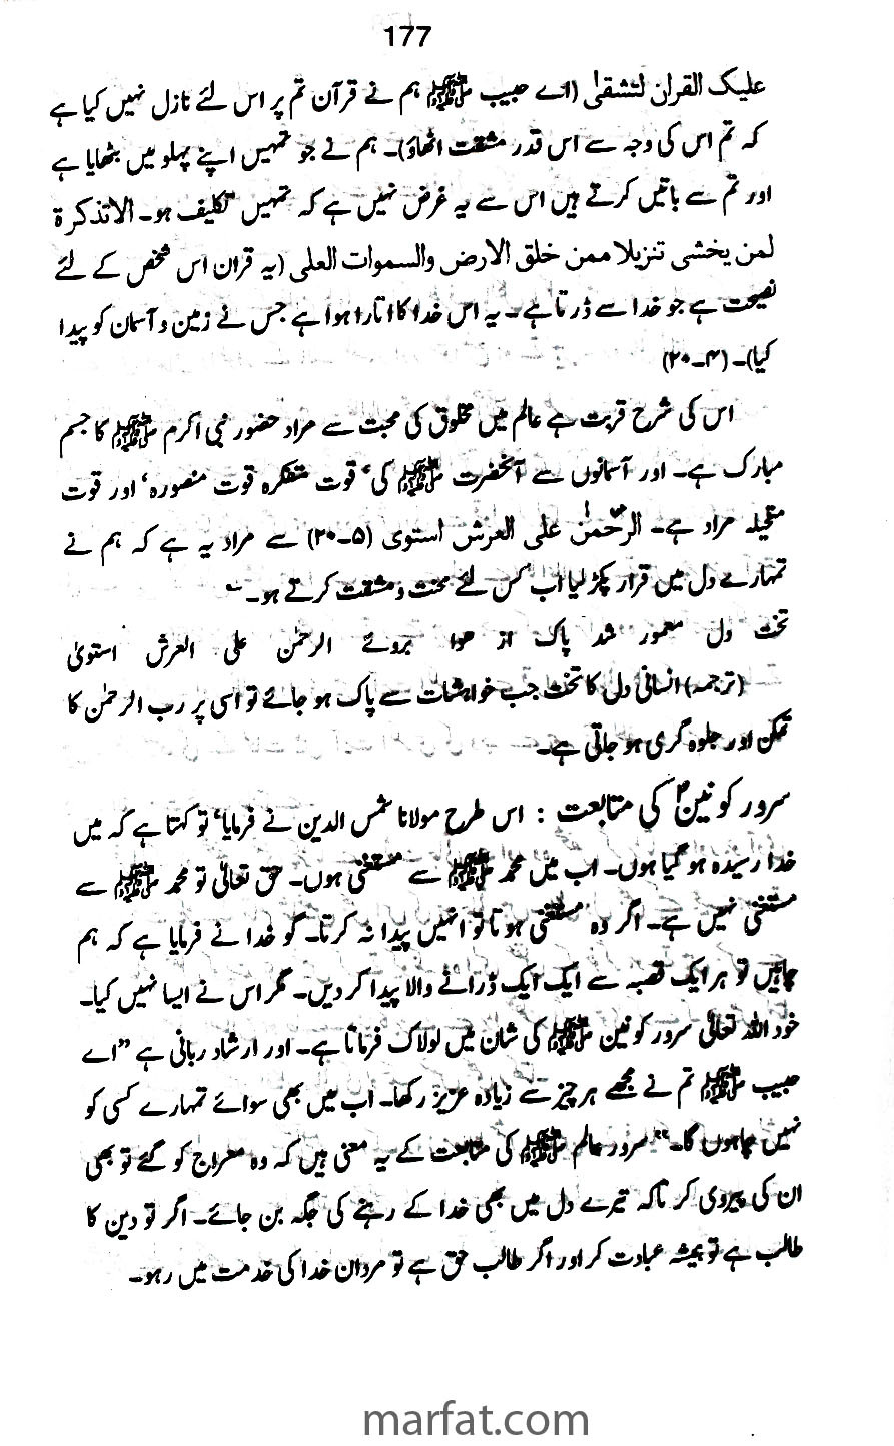 177
علیک القران لتشقیٰ (اے حبیب ﷺ ہم نے قرآن تم پر اس لئے نازل نہیں کیا ہے
کہ تم اس کی وجہ سے اس قدر مشقت اٹھاؤ)۔ ہم نے جو تمہیں اپنے پہلو میں بٹھایا ہے
اور تم سے باتیں کرتے ہیں اس سے یہ غرض نہیں ہے کہ تمہیں تکلیف ہو۔ الا تذکرۃ
لمن یخشی تنزیلا ممن خلق الارض والسموات العلی (یہ قران اس شخص کے لئے
نصیحت ہے جو خدا سے ڈرتا ہے۔ یہ اس خدا کا اتارا ہوا ہے جس نے زمین و آسمان کو پیدا
کیا)۔ (۴۔۲۰)
اس کی شرح قربت ہے عالم میں مخلوق کی محبت سے مراد حضور نبی اکرم ﷺ کا جسم
مبارک ہے۔ اور آسمانوں سے آنحضرت ﷺ کی ‘ قوت متفکرہ قوت منصورہ‘ اور قوت
متخیلہ مراد ہے۔ الرحمٰن علی العرش استوی (۵۔۲۰) سے مراد یہ ہے کہ ہم نے
تمہارے دل میں قرار پکڑ لیا اب کس لئے محنت و مشقت کرتے ہو۔
تخت دل معمور شد پاک از ہوا بروئے الرحمٰن علی العرش استویٰ
(ترجمہ) انسانی دل کا تخت جب خواہشات سے پاک ہو جائے تو اسی پر رب الرحمٰن کا
تمکن اور جلوہ گری ہو جاتی ہے۔
سرور کونینؐ کی متابعت : اس طرح مولانا شمس الدین نے فرمایا‘ تو کہتا ہے کہ میں
خدا رسیدہ ہو گیا ہوں۔ اب میں محمد ﷺ سے مستغنی ہوں۔ حق تعالیٰ تو محمد ﷺ سے
مستغنی نہیں ہے۔ اگر وہ مستغنی ہوتا تو انہیں پیدا نہ کرتا۔ گو خدا نے فرمایا ہے کہ ہم
چاہیں تو ہر ایک قصبہ سے ایک ایک ڈرانے والا پیدا کر دیں۔ مگر اس نے ایسا نہیں کیا۔
خود اللہ تعالیٰ سرور کونین ﷺ کی شان میں لولاک فرماتا ہے۔ اور ارشاد ربانی ہے ”اے
حبیب ﷺ تم نے مجھے ہر چیز سے زیادہ عزیز رکھا۔ اب میں بھی سوائے تمہارے کسی کو
نہیں چاہوں گا۔“ سرور عالم ﷺ کی متابعت کے یہ معنی ہیں کہ وہ معراج کو گئے تو بھی
ان کی پیروی کر تاکہ تیرے دل میں بھی خدا کے رہنے کی جگہ بن جائے۔ اگر تو دین کا
طالب ہے تو ہمیشہ عبادت کر اور اگر طالب حق ہے تو مردان خدا کی خدمت میں رہو۔
marfat.com